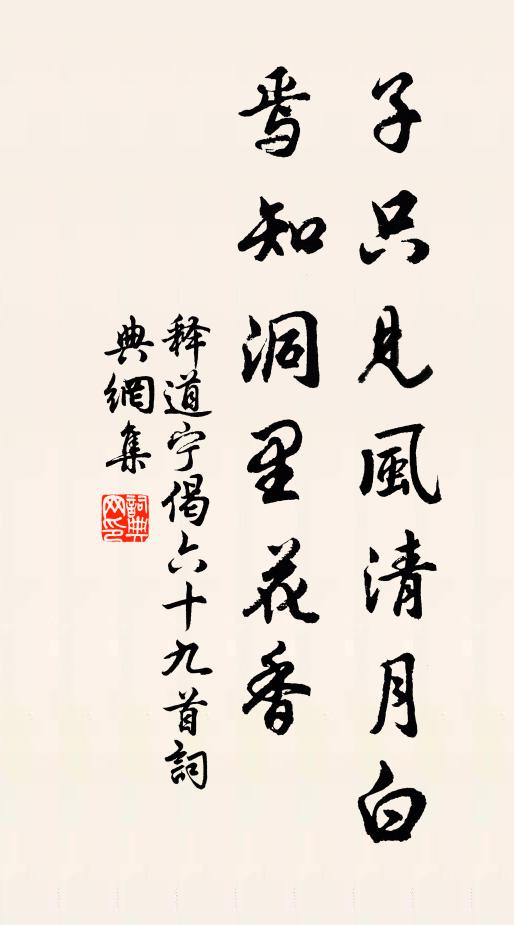 子只見風清月白
焉知洞里花香
释道宁偈六十九首詞
典網集
詞典
网印